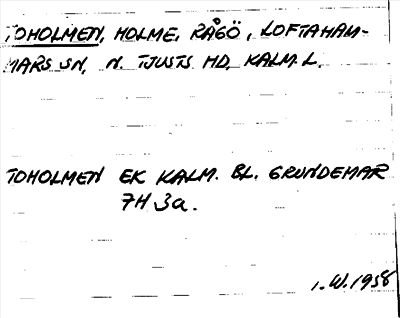 TOHOLMEN, HOLME, RÅGÖ, LOFTAHAM-
MARS SN, N. TJUSTS HD, KALM. L.
TOHOLMEN EK KALM. BL. GRUNDEMAR
7H 3a.
I.W. 1958